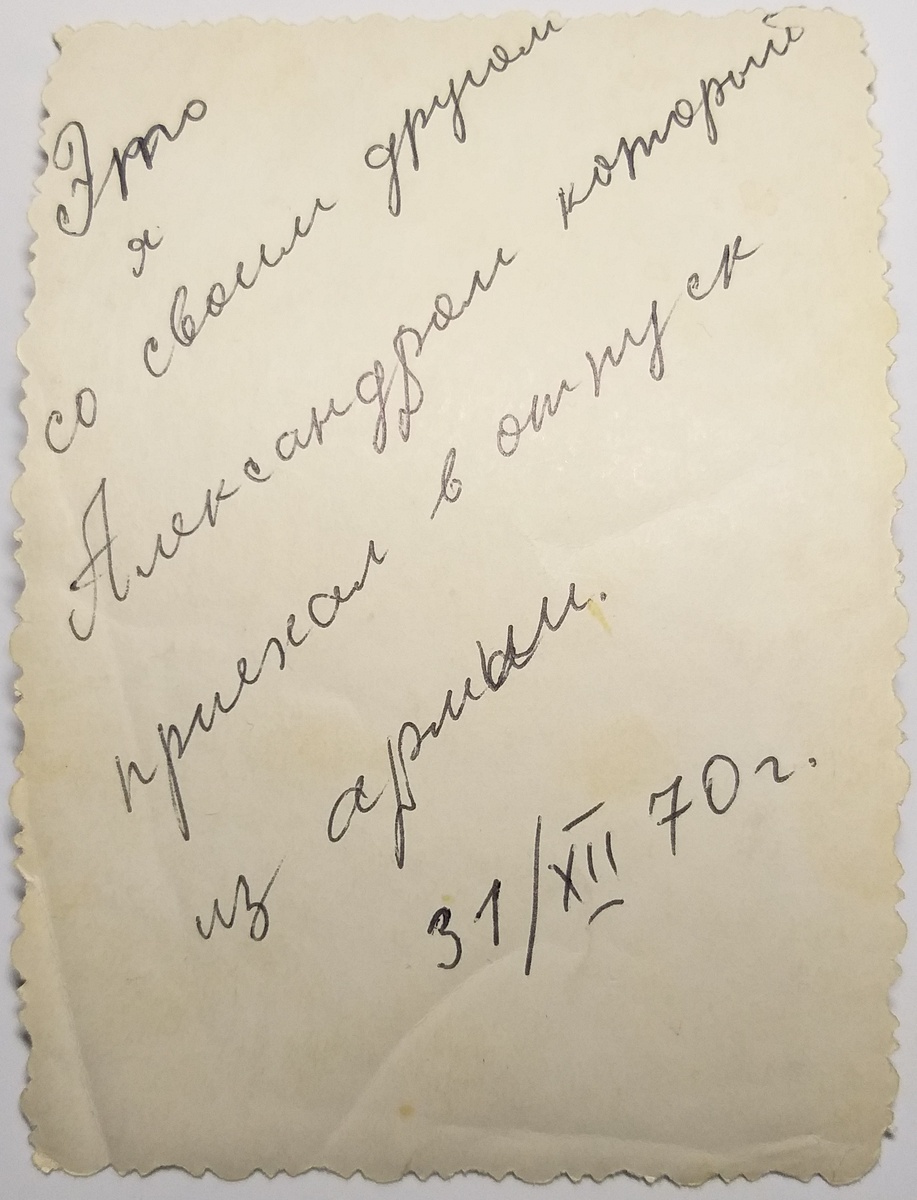 Это
я
со своим другом
Александром который
приехал в отпуск
из армыи.
31/XII 70 г.